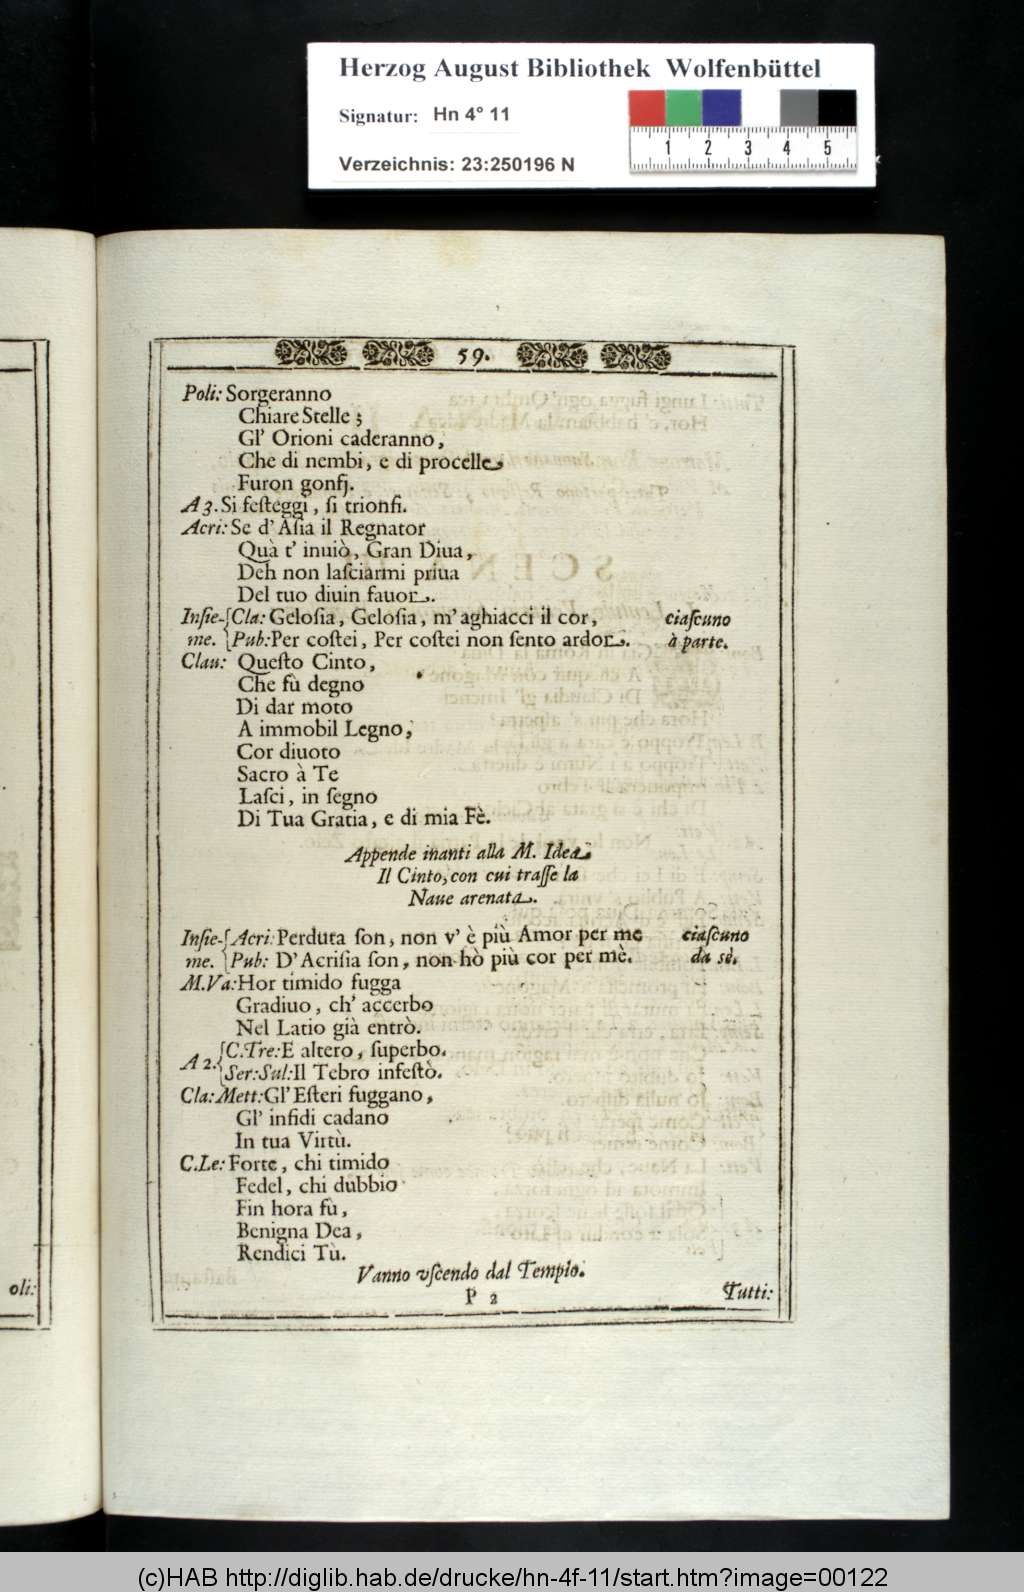 Herzog August Bibliothek Wolfenbüttel
Signatur: Hn 4° 11
Verzeichnis: 23:250196 N
1 2 3 4 5
59.
Poli: Sorgeranno
Chiare Stelle ;
Gl' Orioni caderanno,
Che di nembi, e di procelle
Furon gonfj.
A 3. Si feſteggi, ſi trionfi.
Acri: Se d' Aſia il Regnator
Quà t' inuiò, Gran Diua,
Deh non laſciarmi priua
Del tuo diuin fauor.
Inſie- { Cla: Geloſia, Geloſia, m' aghiacci il cor, ciaſcuno
me. { Pub: Per coſtei, Per coſtei non ſento ardor. à parte.
Clau: Queſto Cinto,
Che fù degno
Di dar moto
A immobil Legno,
Cor diuoto
Sacro à Te
Laſci, in ſegno
Di Tua Gratia, e di mia Fè.
Appende inanti alla M. Idea
Il Cinto, con cui traſſe la
Naue arenata.
Inſie- { Acri: Perduta ſon, non v' è più Amor per me ciaſcuno
me. { Pub: D' Acriſia ſon, non hò più cor per mè. da sè.
M.Va: Hor timido fugga
Gradiuo, ch' accerbo
Nel Latio già entrò.
A 2. { C.Tre: E altero, ſuperbo.
{ Ser: Sul: Il Tebro infeſtò.
Cla: Mett: Gl' Eſteri fuggano,
Gl' infidi cadano
In tua Virtù.
C.Le: Forte, chi timido
Fedel, chi dubbio
Fin hora fù,
Benigna Dea,
Rendici Tù.
Vanno vſcendo dal Templo.
P 2
Tutti:
oli:
(c)HAB http://diglib.hab.de/drucke/hn-4f-11/start.htm?image=00122